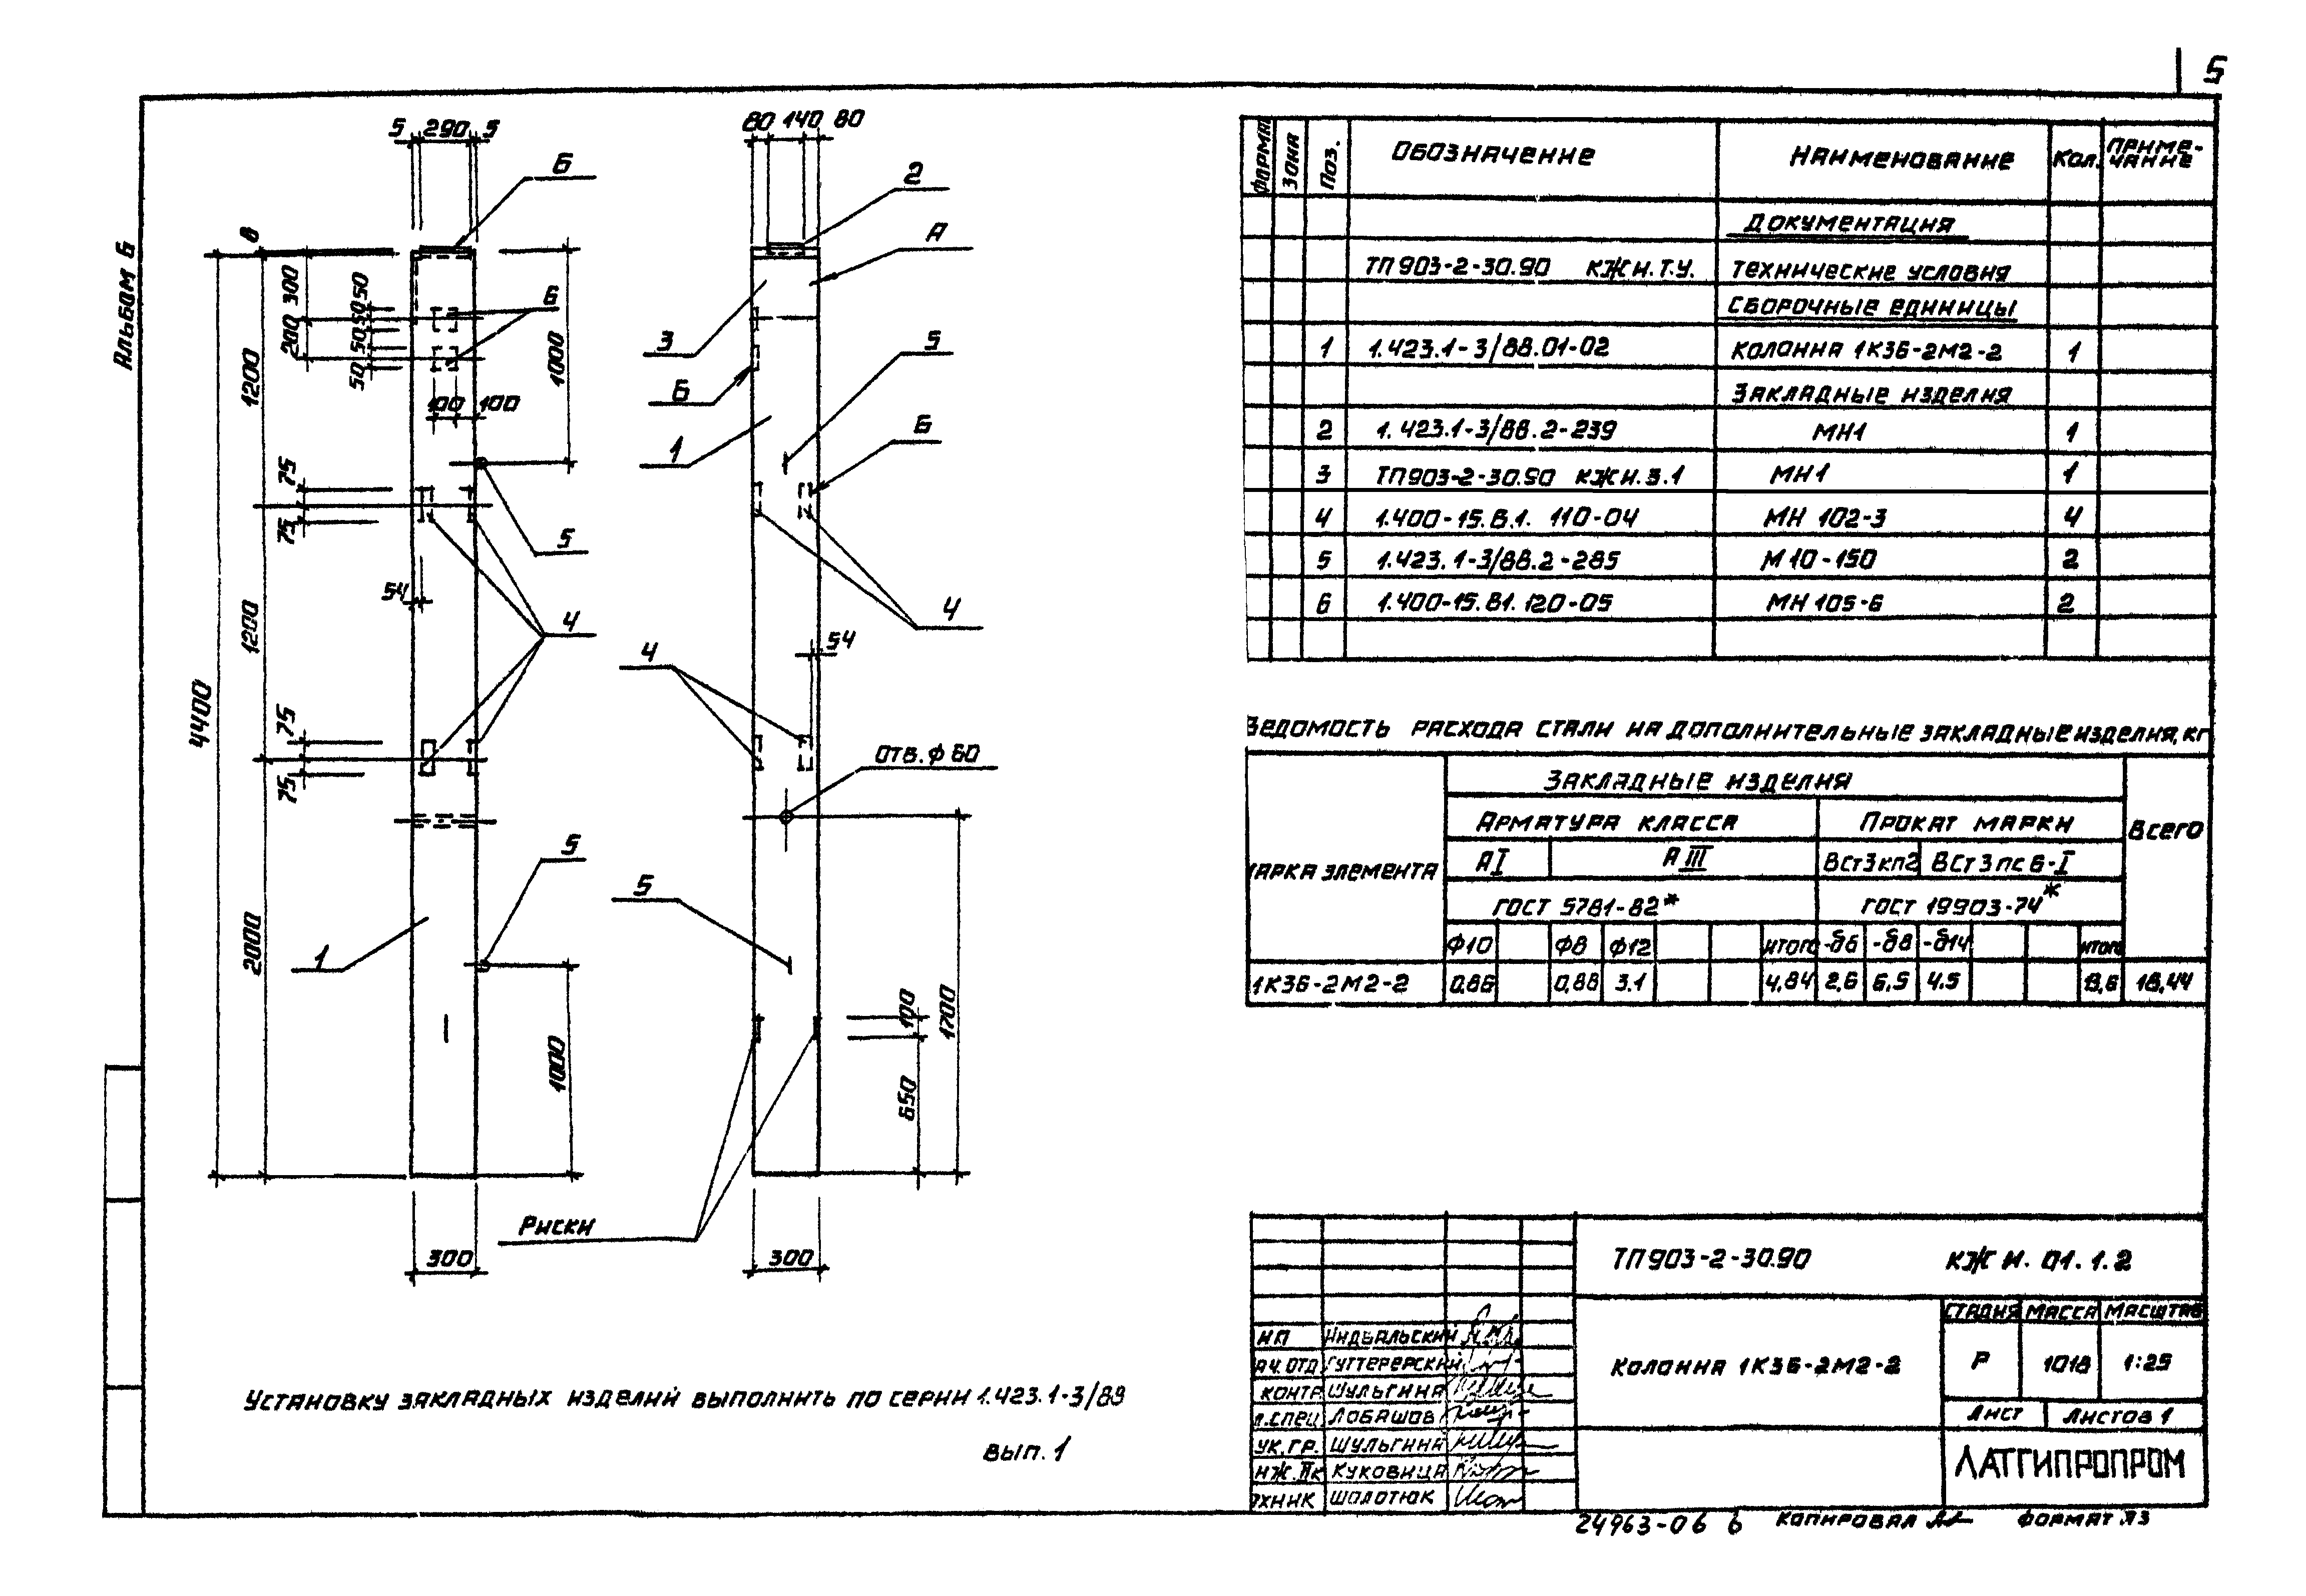 5
Альбом 6
5 290 5
80 140 80
6
2
А
8
300
50
50
200
50
50
6
1200
1000
3
5
Б
100 100
1
Б
75
75
5
54
4
4
1200
4
54
4400
75
75
отв. ф 60
5
5
1
2000
1000
100
1700
650
Риски
300
300
Установку закладных изделий выполнить по серии 1.423.1-3/88
вып. 1
Формат Зона Поз. Обозначение Наименование Кол. Приме-
чание
Документация
ТП 903-2-30.90 КЖИ.Т.У. Технические условия
Сборочные единицы
1 1.423.1-3/88.01-02 Колонна 1К36-2М2-2 1
Закладные изделия
2 1.423.1-3/88.2-239 МН1 1
3 ТП903-2-30.90 КЖИ.3.1 МН1 1
4 1.400-15.В.1. 110-04 МН 102-3 4
5 1.423.1-3/88.2-285 М10-150 2
6 1.400-15.В1. 120-05 МН 105-6 2
Ведомость расхода стали на дополнительные закладные изделия, кг
арка элемента Закладные изделия Всего
Арматура класса Прокат марки
АI АIII ВСт3кп2 ВСт3пс6-I
ГОСТ 5781-82* ГОСТ 19903-74*
Ф10 Ф8 Ф12 Итого -δ6 -δ8 -δ14 Итого
1К36-2М2-2 0,86 0,88 3.1 4,84 2,6 6,5 4.5 13,6 18,44
ТП903-2-30.90 КЖИ.01.1.2
Стадия Масса Масштаб
ИП Индвальский
Колонна 1К36-2М2-2 Р 1018 1:25
ач.отд Гуттерерский
контр Шульгина
л.спец Лобашов
Лист Листов 1
ук.гр. Шульгина
нж.IIк Куковица
ЛАТГИПРОПРОМ
ехник Шолотюк
24963-06 6 Копировал Формат А3